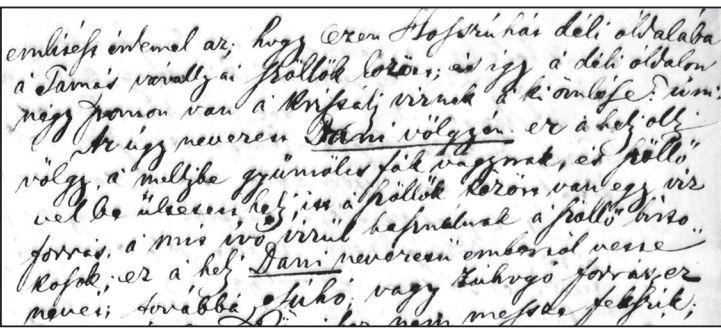 emlitésst érdemel az; hogy ezen Hosszúhát déli oldalába
á Tamás váraljai szőllők közön; és igy á déli óldalon
négy ponton van á Krissalj viznek á kiömlése? úmi:
Az úgy nevezett Dani völgyén ez á hely olly
völgy, á melljbe gyümőlts fák vagynak, és szőllő
vel be ültesett hely itt á szőllők között van egy viz
forrás, á mis ivó vizűl használnak á szőllő birto
kosok; ez á hely Dani nevezetű emberről vesse
nevét; továbbá Csúhó, vagy Zúhogó forrás, ez
nem messze fekszik;